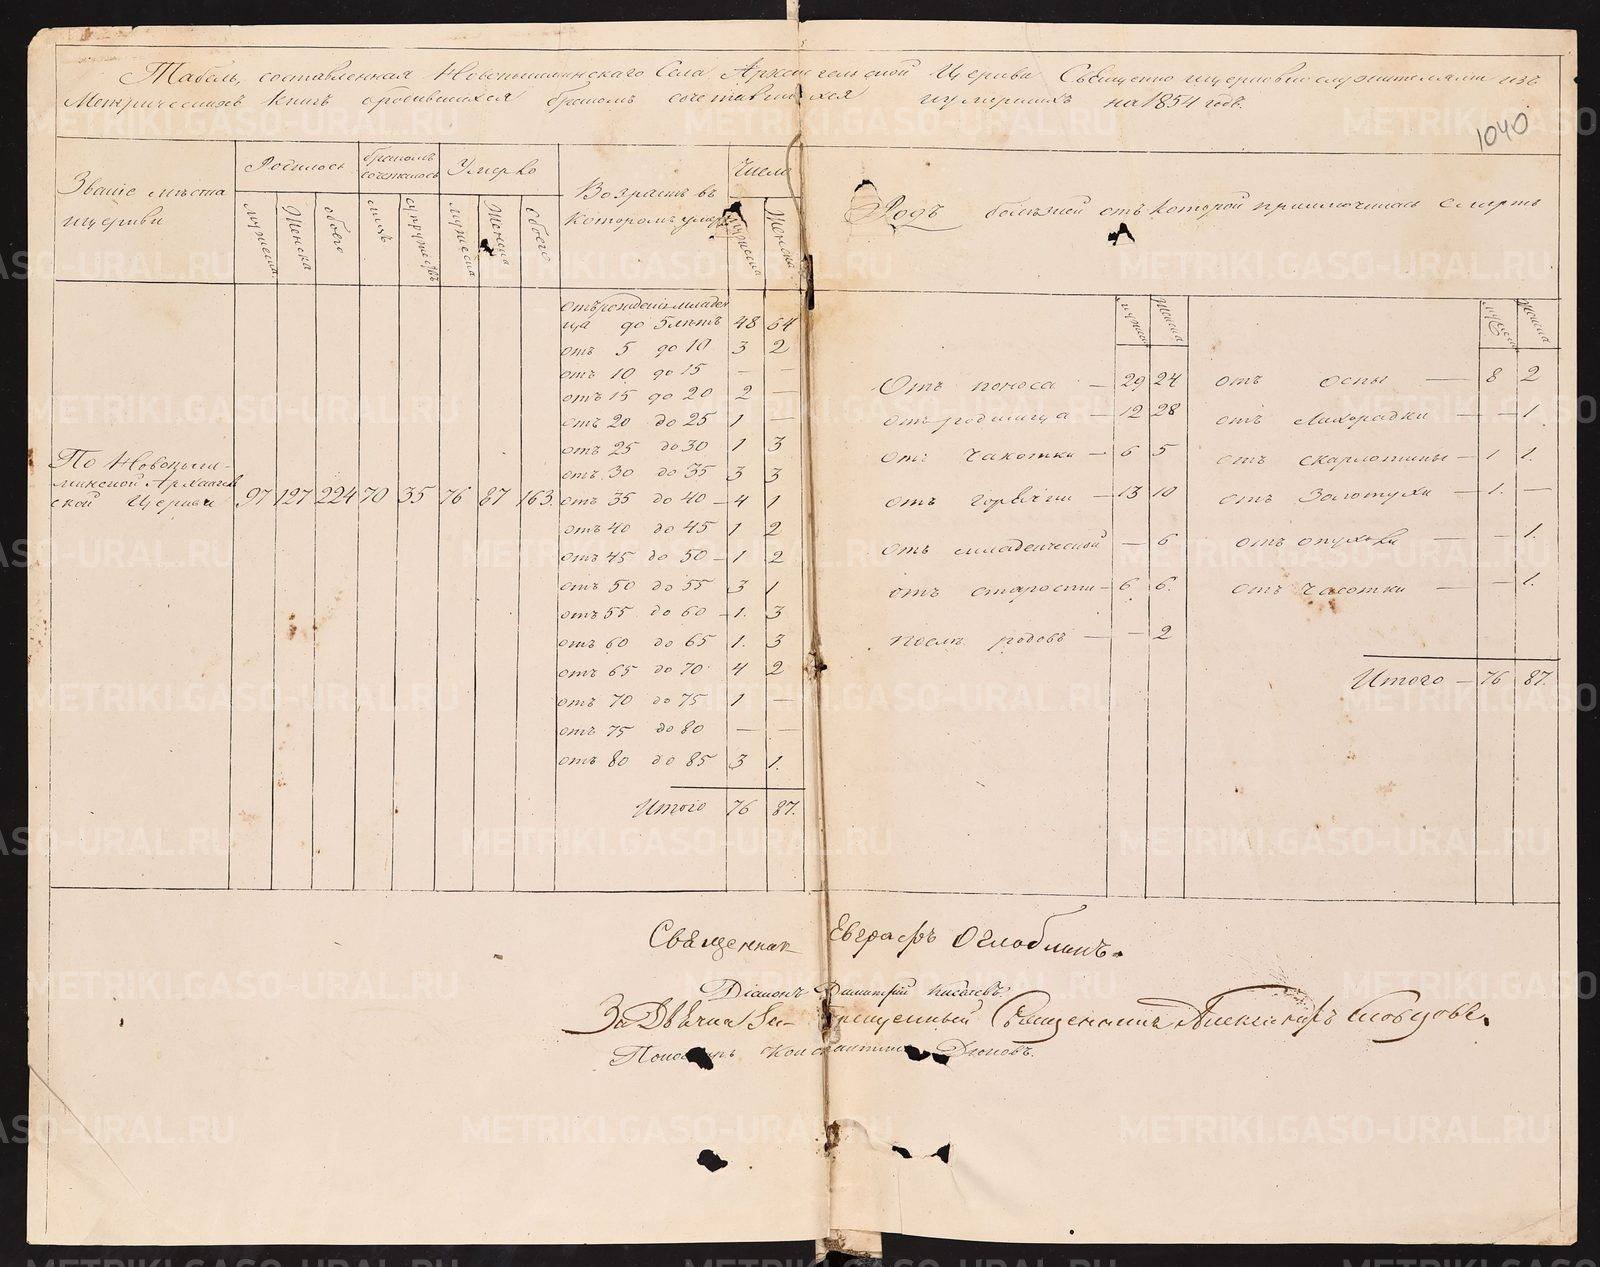 Табель, составленная Новопышминскаго Села Архангельской Церкви Священно церковно служителями изъ
Метрическихъ Книгъ о родившихся бракомъ сочетавшихся и умершихъ на 1854 годъ.
1040
Званіе мѣста и церкви
Родилось
бракомъ сочеталось
Умерло
Возрастъ въ которомъ умер
Число
Родъ болѣзней отъ которой приключилась смерть
мужеска
Женска
обоего
лицъ
супружествъ
мужеска
Женска
Обоего
мужеска
Женска
мужеска
Женска
мужеска
Женска
По Новопыш-
минской Архангель
ской Церкви 97 127 224 70 35 76 87 163.
отъ рожденія младен
ца до 5 лѣтъ 48 64
отъ 5 до 10 3 2
отъ 10 до 15 — —
отъ 15 до 20 2 —
отъ 20 до 25 1 —
отъ 25 до 30 1 3
отъ 30 до 35 3 3
отъ 35 до 40 – 4 1
отъ 40 до 45 1 2
отъ 45 до 50 – 1 2
отъ 50 до 55 3 1
отъ 55 до 60 – 1. 3
отъ 60 до 65 1. 3
отъ 65 до 70 4 2
отъ 70 до 75 1 —
отъ 75 до 80 — —
отъ 80 до 85 3 1.
Итого 76 87.
Отъ поноса — 29 24
отъ родимца — 12 28
отъ Чахотки — 6 5
отъ горячки — 13 10
отъ младенческой — 6
отъ старости — 6 6.
послѣ родовъ — — 2
отъ оспы — 8 2
отъ Лихорадки — — 1
отъ скарлотины — 1 1.
отъ Золотухи — 1. —
отъ опухоли — — 1.
отъ Часотки — — 1.
Итого — 76 87.
Священник Евграфъ Оглоблинъ.
Діаконъ Димитрій Кисѣлевъ.
За Дьячка Запрещенный Священникъ Александръ Словцовъ.
Пономарь Константинъ Дюковъ.
METRIKI.GASO-URAL.RU